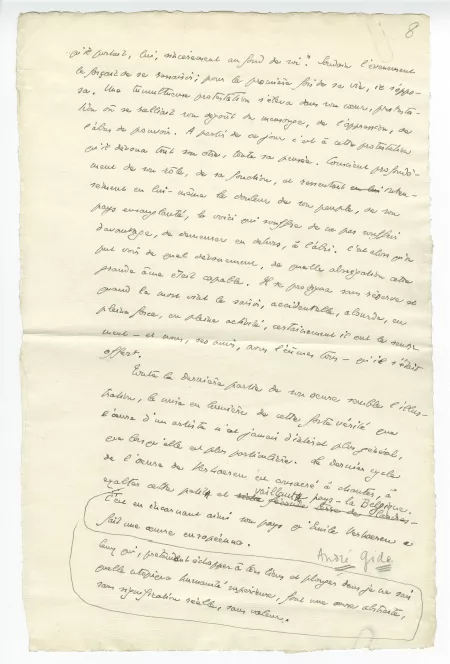 8
qu'il portait, lui, sincèrement au fond de soi". Soudain l'événement
le forçait de se ressaisir; pour la première fois de sa vie, il s'oppo-
sa. Une tumultueuse protestation s'éleva dans son cœur, protesta-
tion où se ralliait son dégoût du mensonge, de l'oppression, de
l'abus de pouvoir. A partir de ce jour c'est à cette protestation
qu'il dévoua tout son être, toute sa pensée. Conscient profondé-
ment de son rôle, de sa fonction, et ressentant en lui inten-
sément en lui-même la douleur de son peuple, de son
pays ensanglanté, le voici qui souffre de ne pas souffrir
davantage, de demeurer en dehors, à l'abri. C'est alors qu'on
put voir de quel dévouement, de quelle abnégation cette
grande âme était capable. Il se prodigua sans réserve et
quand la mort vint le saisir, accidentelle, absurde, en
pleine force, en pleine activité, certainement il eut le senti-
ment - et nous, ses amis, avons l'eûmes tous - qu'il s'était
offert.
Toute la dernière partie de son œuvre semble l'illus-
tration, la mise en lumière de cette forte vérité que
l'œuvre d'un artiste n'a jamais d'intérêt plus général,
que lorsqu'elle est plus particulière. Le dernier cycle
de l'œuvre de Verhaeren est consacré à chanter, à
exalter cette petit et vaillant pays - la Belgique.
C'est en incarnant ainsi son pays qu'Emile Verhaeren a
fait une œuvre européenne.
André Gide
Ceux qui, prétendant échapper à ces liens et plonger dans je ne sais
quelle utopique humanité supérieure, font une œuvre abstraite,
sans signification réelle, sans valeur.